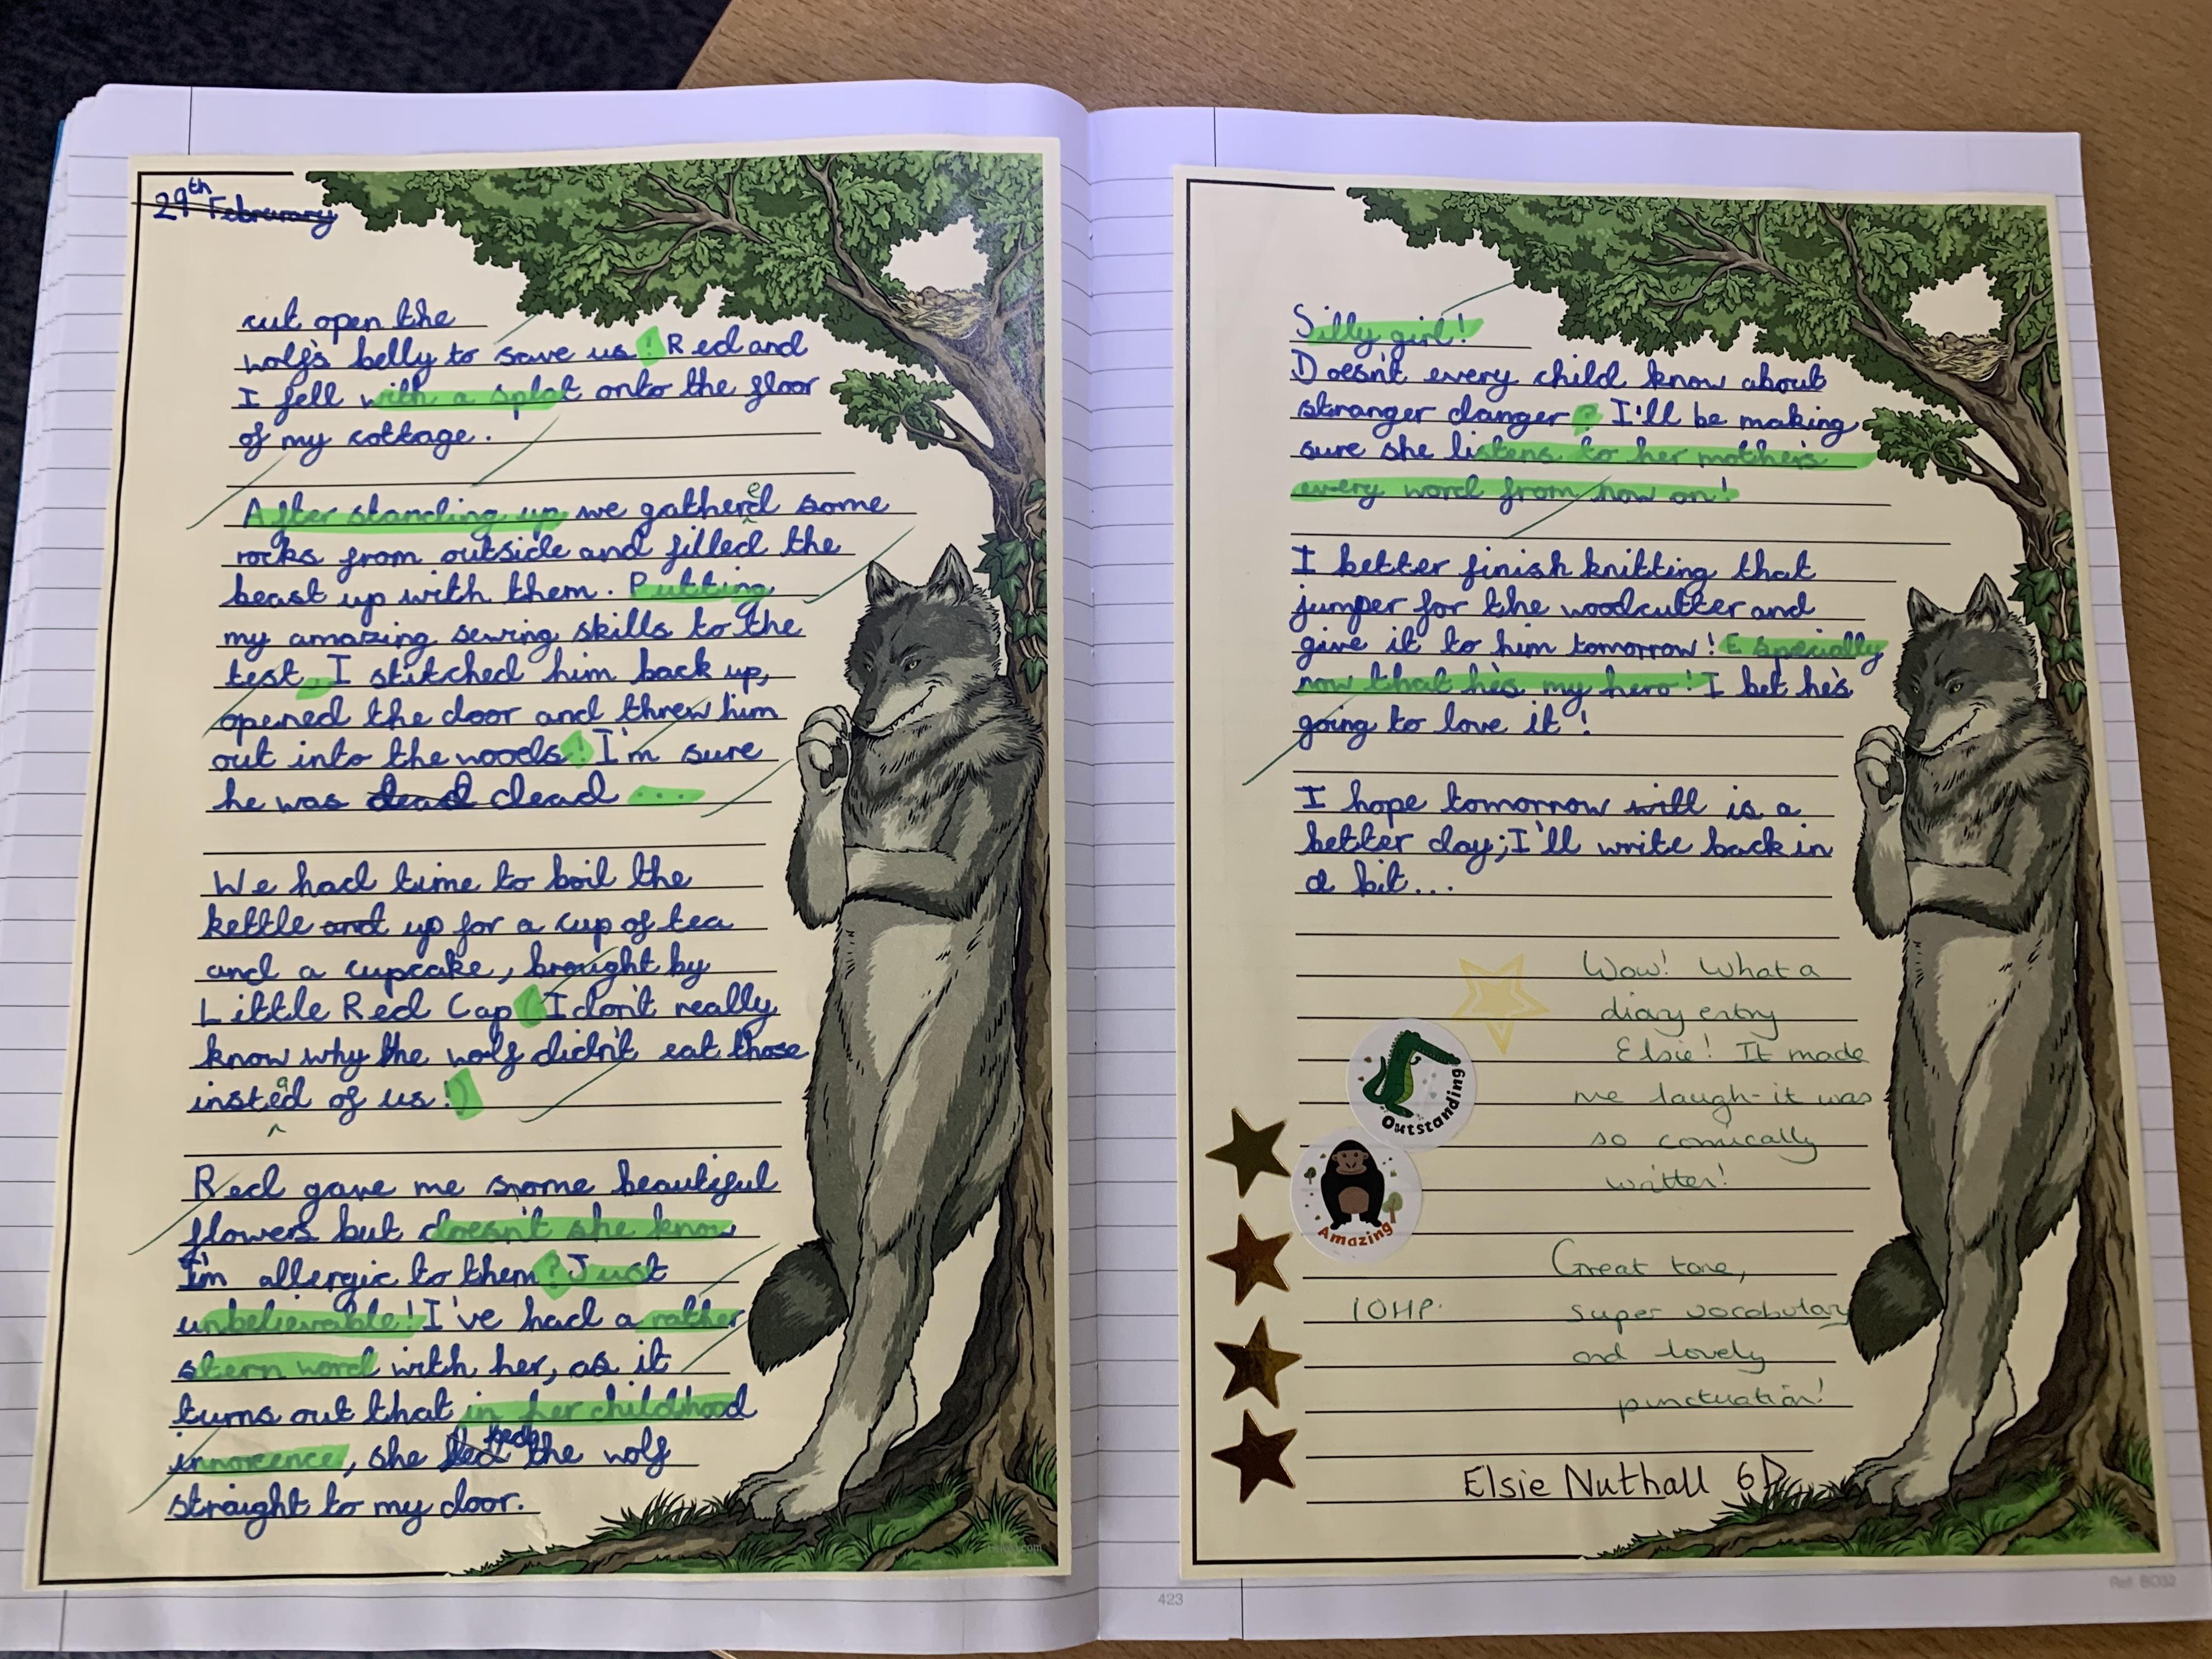 29th Februrary
cut open the
wolf's belly to save us! Red and
I fell with a splat onto the floor
of my cottage.
After standing up we gathered some
rocks from outside and filled the
beast up with them. Putting
my amazing sewing skills to the
test, I stitched him back up,
opened the door and threw him
out into the woods! I'm sure
he was dead dead ....
We had time to boil the
kettle and up for a cup of tea
and a cupcake, brought by
Little Red Cap (I don't really
know why the wolf didn't eat those
instead of us!)
Red gave me some beautiful
flowers but doesn't she know
I'm allergic to them? Just
unbelievable! I've had a rather
stern word with her, as it
turns out that in her childhood
innocence, she led the wolf
straight to my door.
Silly girl!
Doesn't every child know about
stranger danger? I'll be making
sure she listens to her mother's
every word from now on!
I better finish knitting that
jumper for the woodcutter and
give it to him tomorrow! Especially
now that he's my hero! I bet he's
going to love it!
I hope tomorrow will is a
better day; I'll write back in
a bit...
Wow! What a
diary entry
Elsie! It made
me laugh - it was
so comically
written!
Outstanding
Amazing
Great tone,
10HP.
super vocabulary
and lovely
punctuation!
Elsie Nuthall 6D
423
Ref: BO32